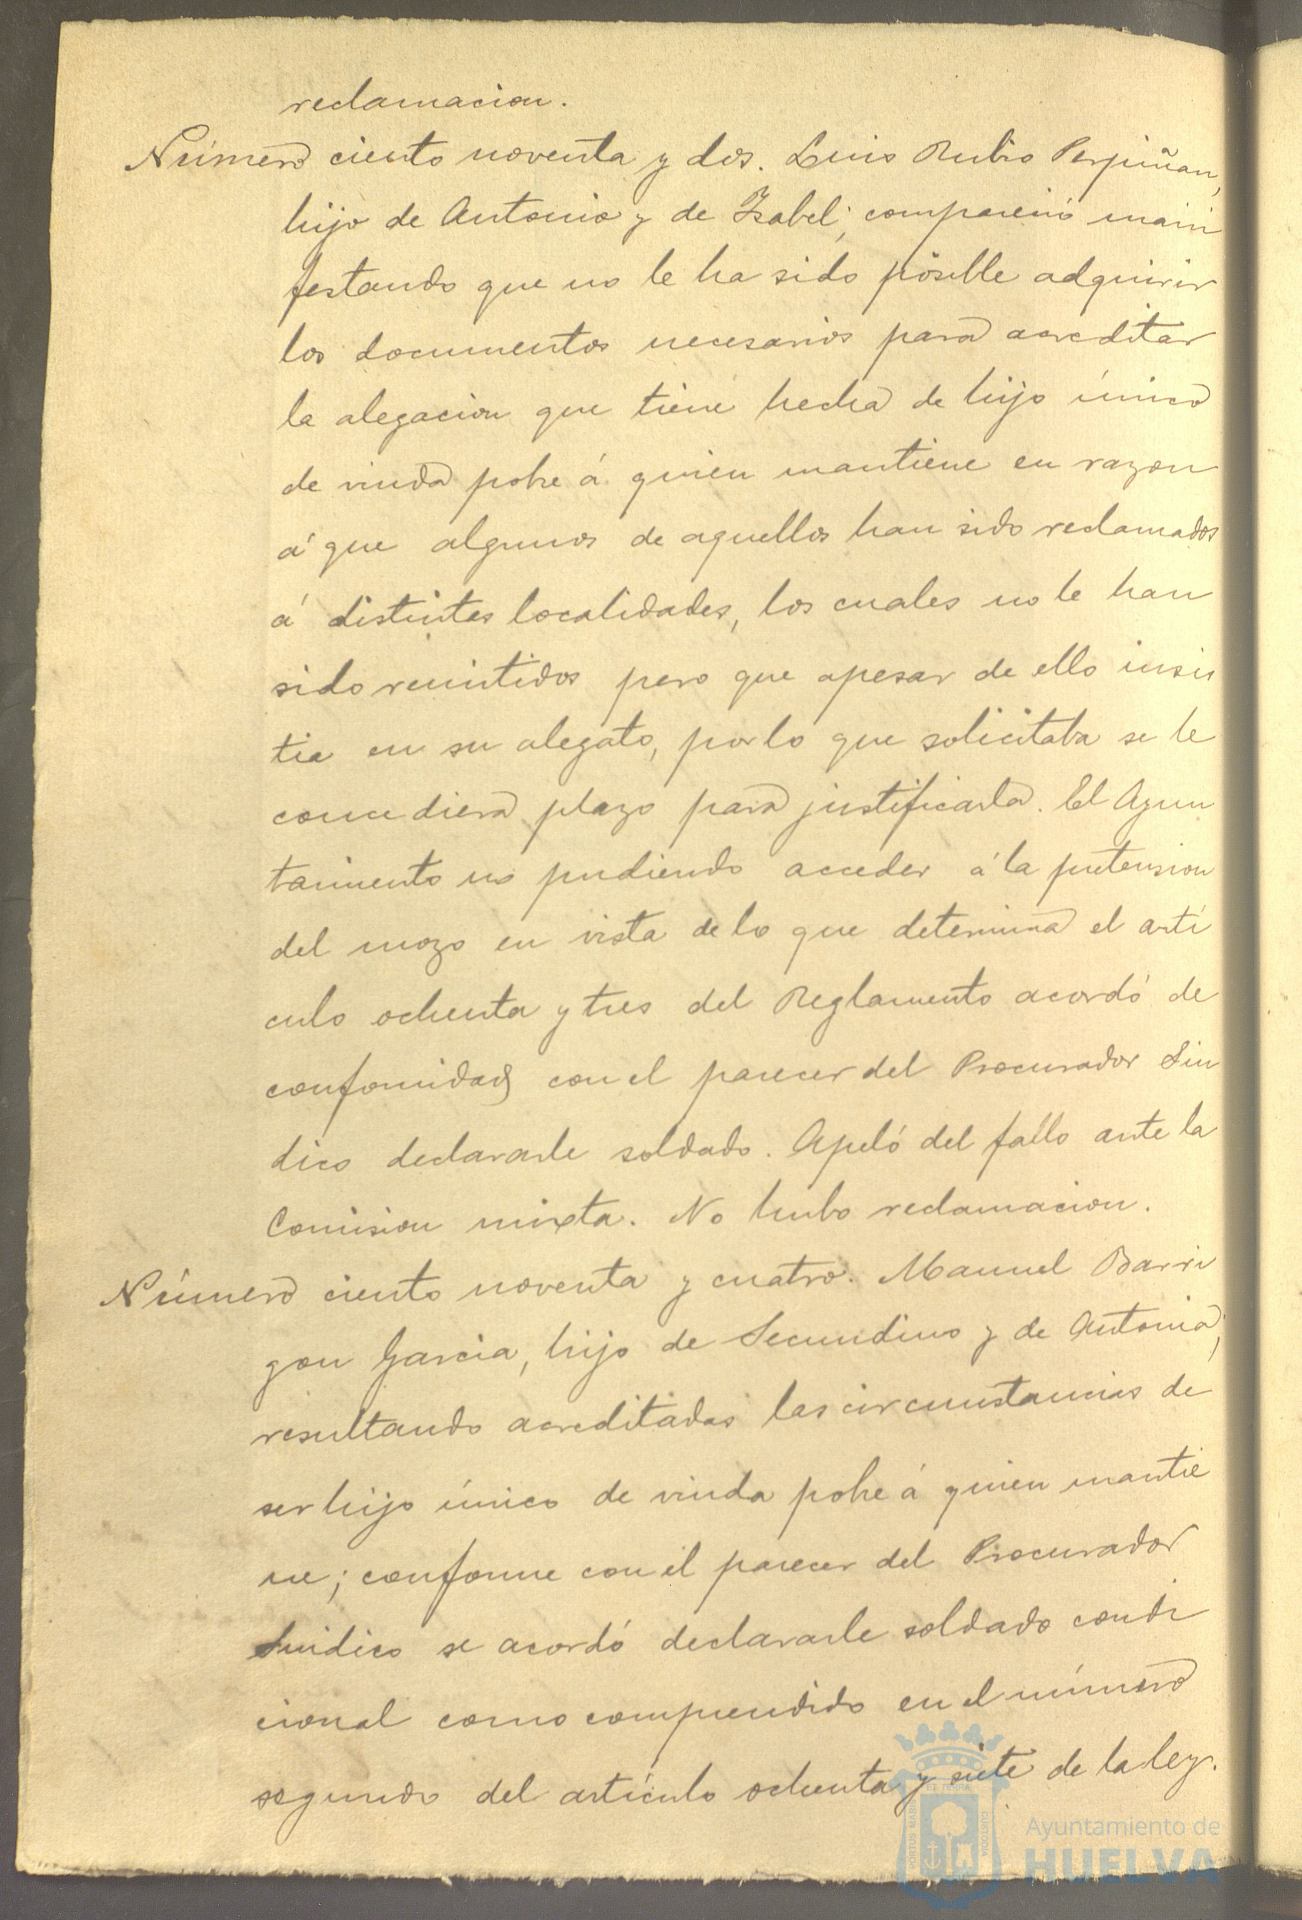 reclamacion.
Número ciento noventa y dos. Luis Rubio Perpiñan,
hijo de Antonio y de Isabel; compareció mani
festando que no le ha sido posible adquirir
los documentos necesarios para acreditar
la alegacion que tiene hecha de hijo único
de viuda pobre á quien mantiene en razon
á que algunos de aquellos han sido reclamados
á distintas localidades, los cuales no le han
sido remitidos pero que apesar de ello insis
tia en su alegato, por lo que solicitaba se le
concediera plazo para justificarla. El Ayun
tamiento no pudiendo acceder á la pretension
del mozo en vista de lo que determina el arti
culo ochenta y tres del Reglamento acordó de
conformidad con el parecer del Procurador Sin
dico declararle soldado. Apeló del fallo ante la
Comision mixta. No hubo reclamacion.
Número ciento noventa y cuatro. Manuel Barri
gon Garcia, hijo de Secundino y de Antonia;
resultando acreditadas las circunstancias de
ser hijo único de viuda pobre á quien mantie
ne; conforme con el parecer del Procurador
Sindico se acordó declararle soldado condi
cional como comprendido en el número
segundo del artículo ochenta y siete de la ley.
Ayuntamiento de
HUELVA